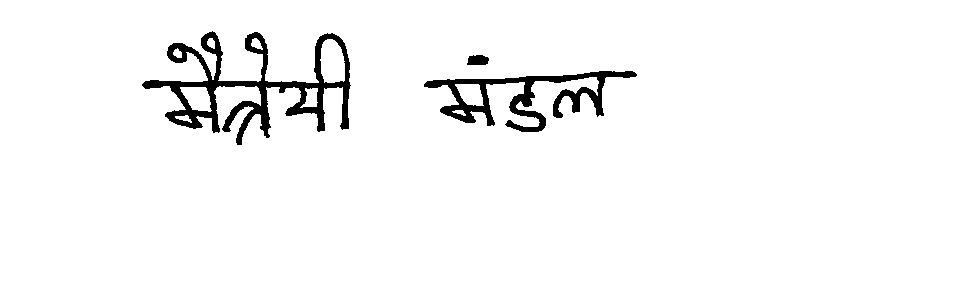 मैत्रेयी मंडल